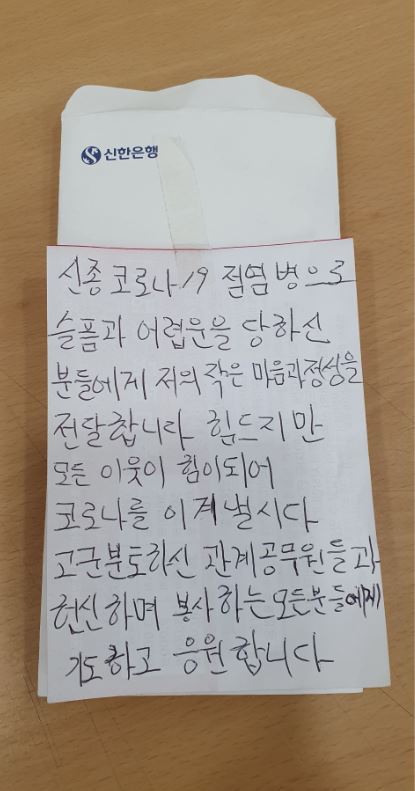 신한은행
신종 코로나 19 점염병으로
슬픔과 어렵운을 당하신
분들에게 저의 작은 마음과정성을
전달합니다 힘드지만
모든 이웃이 힘이되어
코로나를 이겨낼시다
고군분토하신 관계공무원들과
헌신하며 봉사하는모든분들에게
기도하고 응원합니다